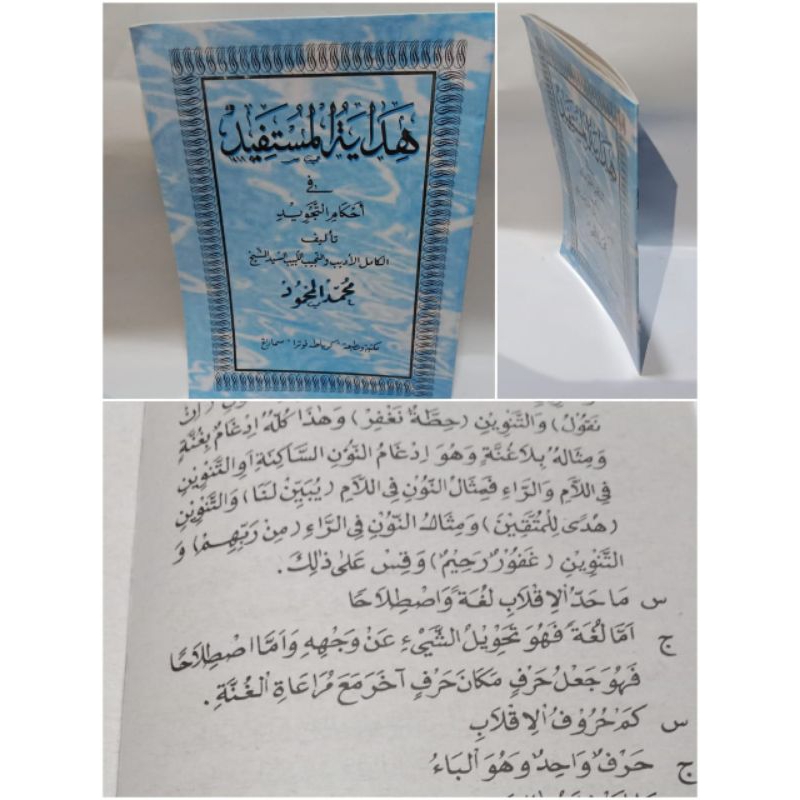 هداية المستفيد
في
أحكام التجويد
تأليف
الكامل الأديب والنجيب اللبيب السيد الشيخ
محمد المحمود
مكتبة ومطبعة "كرياطه فوترا" سماراغ
نَقُوْلُ) وَالتَّنْوِيْنِ (حِطَّةٌ نَغْفِرْ) وَهٰذَا كُلُّهُ اِدْغَامٌ بِغُنَّةٍ
وَمِثَالُهُ بِلَاغُنَّةٍ وَهُوَ اِدْغَامُ النُّوْنِ السَّاكِنَةِ اَوِالتَّنْوِيْنِ
فِى اللَّامِ وَالرَّاءِ فَمِثَالُ النُّوْنِ فِى اللَّامِ (يُبَيِّنْ لَنَا) وَالتَّنْوِيْنِ
(هُدًى لِلْمُتَّقِيْنَ) وَمِثَالُ النُّوْنِ فِى الرَّاءِ (مِنْ رَبِّهِمْ) وَ
التَّنْوِيْنِ (غَفُوْرٌ رَحِيْمٌ) وَقِسْ عَلَى ذٰلِكَ.
س مَاحَدُّ اْلِاقْلَابِ لُغَةً وَاصْطِلَاحًا
ج اَمَّا لُغَةً فَهُوَ تَحْوِيْلُ الشَّيْءِ عَنْ وَجْهِهِ وَاَمَّا اصْطِلَاحًا
فَهُوَ جَعْلُ حَرْفٍ مَكَانَ حَرْفٍ آخَرَ مَعَ مُرَاعَاةِ الْغُنَّةِ.
س كَمْ حُرُوْفُ اْلِاقْلَابِ
ج حَرْفٌ وَاحِدٌ وَهُوَ الْبَاءُ